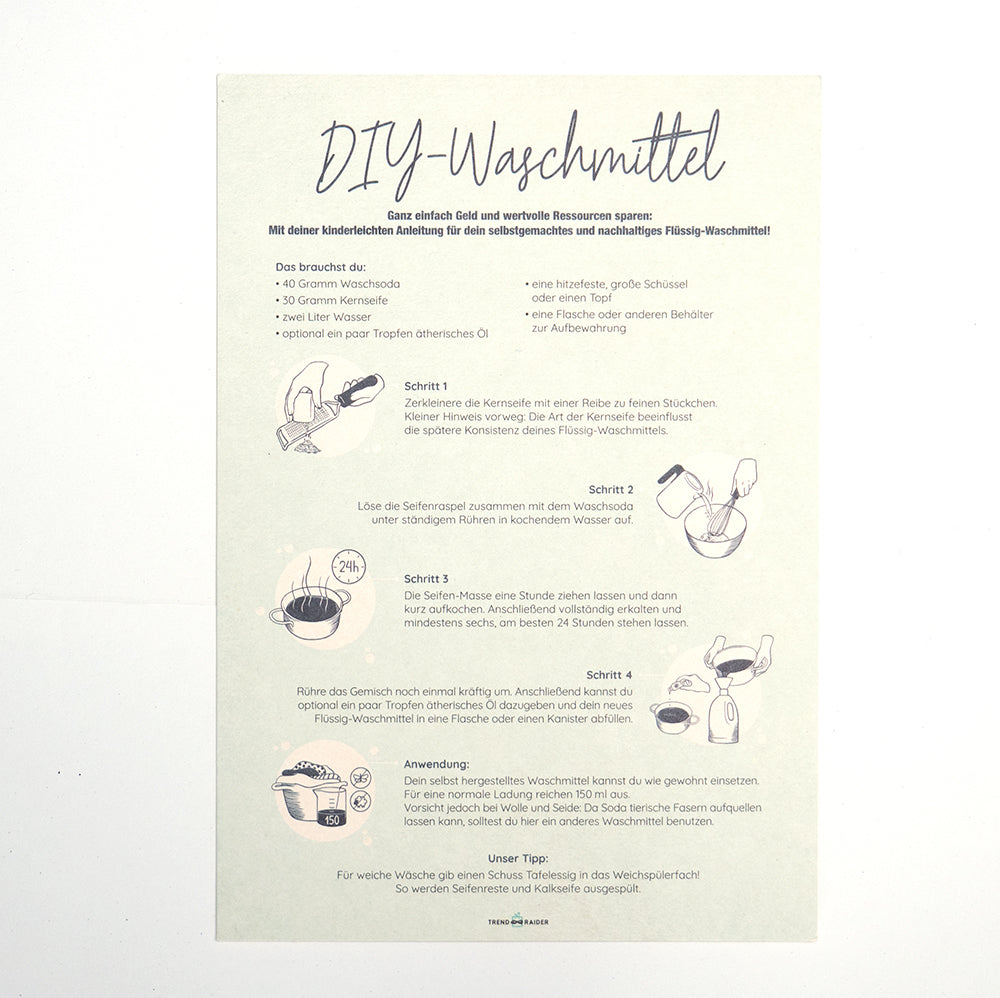 DIY-Waschmittel
Ganz einfach Geld und wertvolle Ressourcen sparen:
Mit deiner kinderleichten Anleitung für dein selbstgemachtes und nachhaltiges Flüssig-Waschmittel!
Das brauchst du:
• 40 Gramm Waschsoda
• 30 Gramm Kernseife
• zwei Liter Wasser
• optional ein paar Tropfen ätherisches Öl
• eine hitzefeste, große Schüssel
oder einen Topf
• eine Flasche oder anderen Behälter
zur Aufbewahrung
Schritt 1
Zerkleinere die Kernseife mit einer Reibe zu feinen Stückchen.
Kleiner Hinweis vorweg: Die Art der Kernseife beeinflusst
die spätere Konsistenz deines Flüssig-Waschmittels.
Schritt 2
Löse die Seifenraspel zusammen mit dem Waschsoda
unter ständigem Rühren in kochendem Wasser auf.
24h
Schritt 3
Die Seifen-Masse eine Stunde ziehen lassen und dann
kurz aufkochen. Anschließend vollständig erkalten und
mindestens sechs, am besten 24 Stunden stehen lassen.
Schritt 4
Rühre das Gemisch noch einmal kräftig um. Anschließend kannst du
optional ein paar Tropfen ätherisches Öl dazugeben und dein neues
Flüssig-Waschmittel in eine Flasche oder einen Kanister abfüllen.
150
Anwendung:
Dein selbst hergestelltes Waschmittel kannst du wie gewohnt einsetzen.
Für eine normale Ladung reichen 150 ml aus.
Vorsicht jedoch bei Wolle und Seide: Da Soda tierische Fasern aufquellen
lassen kann, solltest du hier ein anderes Waschmittel benutzen.
Unser Tipp:
Für weiche Wäsche gib einen Schuss Tafelessig in das Weichspülerfach!
So werden Seifenreste und Kalkseife ausgespült.
TREND RAIDER